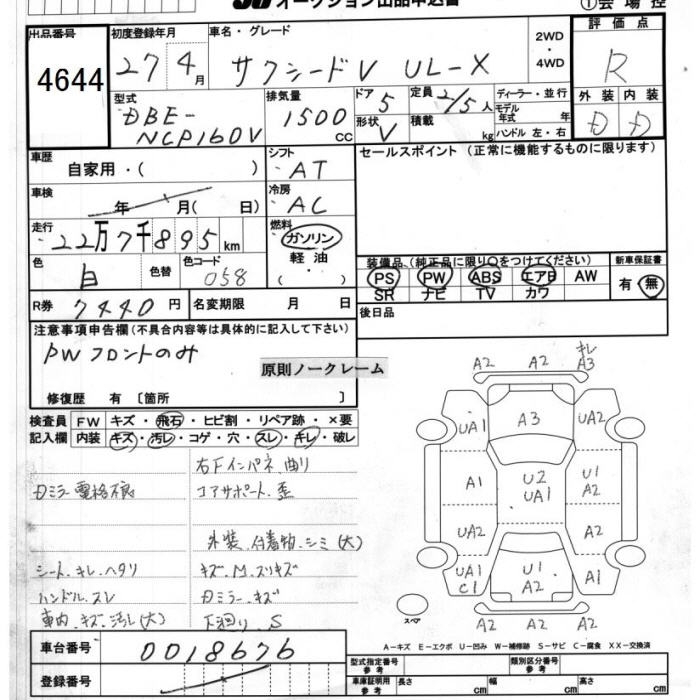 オークション出品申込書
①会場控
出品番号
4644
初度登録年月
27年4月
車名・グレード
サクシードV UL-X
2WD
・
4WD
評価点
R
外装 内装
D D
型式
DBE-
NCP160V
排気量
1500
cc
ドア
5
形状
V
定員 2/5人
積載
kg
ディーラー・並行
モデル
年式 年
ハンドル 左・右
車歴
自家用・( )
シフト
AT
車検
年 月( 日)
冷房
AC
走行
22万7千895km
燃料
ガソリン
・
軽油
( ・ )
色
白
色替
色コード
058
R券 7440円
名変期限 月 日
セールスポイント (正常に機能するものに限ります)
装備品 (純正品に限り○をつけてください)
PS PW ABS エアB AW
SR ナビ TV カワ
新車保証書
有・無
後日品
注意事項申告欄(不具合内容等は具体的に記入して下さい)
PWフロントのみ
原則ノークレーム
修復歴 有 [箇所 ]
検査員
記入欄
FW キズ・飛石・ヒビ割・リペア跡・×要
内装 キズ・汚レ・コゲ・穴・スレ・キレ・破レ
右Fインパネ曲り
Dミラー電格不良
コアサポート歪
外装、付着物・シミ(大)
シート、キレ、ヘタリ
キズ、M、スリキズ
ハンドル、スレ
Dミラー、キズ
車内、キズ、汚レ(大)
下廻り、S
キレ
A2 A2 A3
UA1 A3 UA2
A1 U2 UA1 U1 A2
UA2 A2
UA1 C1 U1 A2 A1
スペア
A2 A2 A2
A-キズ E-エクボ U-凹み W-補修跡 S-サビ C-腐食 XX-交換済
車台番号
0018676
登録番号
型式指定番号
参考
類別区分番号
参考
車庫証明用
参考
長さ cm
幅 cm
高さ cm